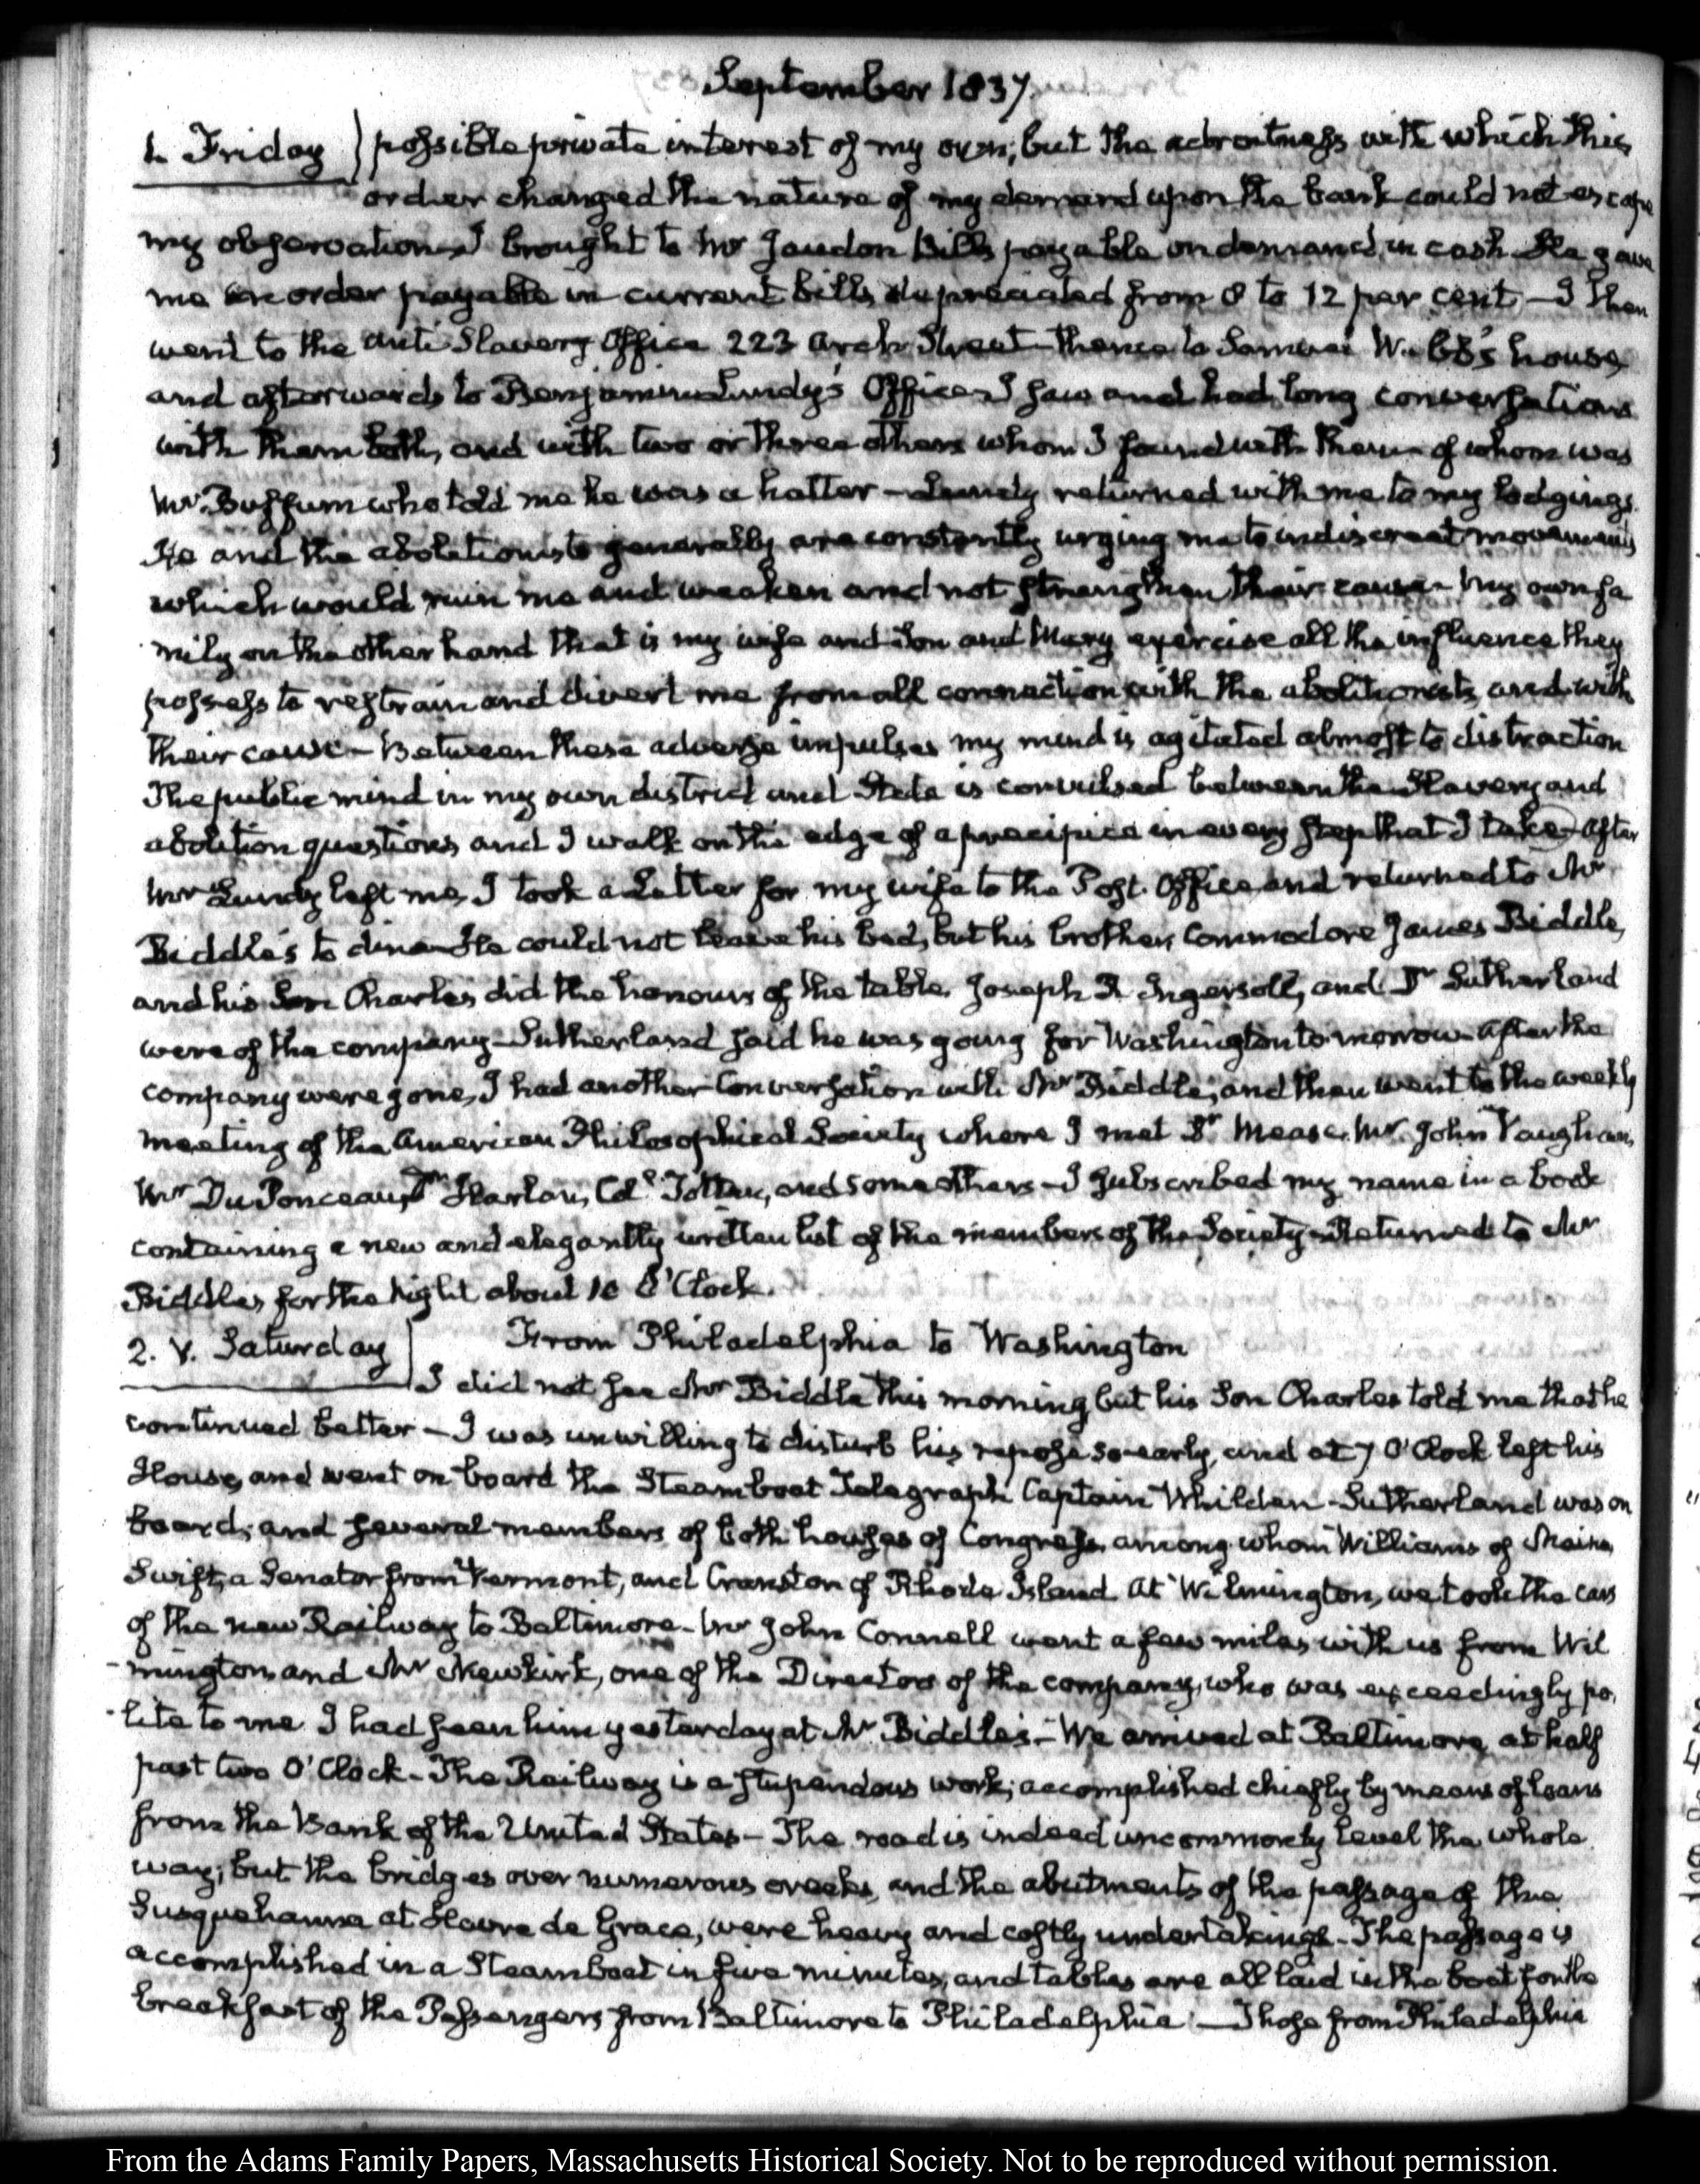 September 1837
1. Friday) possible private interest of my own; but the adroitness with which this
order changed the nature of my demand upon the bank could not escape
my observation. I brought to Mr Jaudon Bills payable on demand in cash. He gave
me an order payable in current bills, depreciated from 8 to 12 per cent — I then
went to the Anti Slavery Office 223 Arch Street — thence to Samuel Webb's house,
and afterwards to Benjamin Lundy's Office. I saw and had long conversations
with them both, and with two or three others whom I found with them — of whom was
Mr Buffum who told me he was a hatter — Lundy returned with me to my lodgings.
He and the abolitionists generally are constantly urging me to indiscreet movements
which would ruin me and weaken and not strengthen their cause — My own fa
mily on the other hand that is my wife and Son and Mary exercise all the influence they
possess to restrain and divert me from all connection with the abolitionists, and with
their cause — Between these adverse impulses my mind is agitated almost to distraction
The public mind in my own district and State is convulsed between the Slavery and
abolition questions and I walk on the edge of a precipice in every step that I take — After
Mr Lundy left me, I took a Letter for my wife to the Post Office and returned to Mr
Biddle's to dine — He could not leave his bed, but his brother, Commodore James Biddle,
and his Son Charles did the honours of the table. Joseph R Ingersoll, and Dr Sutherland
were of the company — Sutherland said he was going for Washington to-morrow — After the
company were gone, I had another Conversation with Mr Biddle; and then went to the weekly
meeting of the American Philosophical Society where I met Dr Mease, Mr John Vaughan,
Mr Du Ponceau, Dr Harlan, Col. Totten, and some others — I subscribed my name in a book
containing a new and elegantly written list of the members of the Society — Returned to Mr
Biddle's for the night about 10 O'Clock.
2. V. Saturday) From Philadelphia to Washington
I did not see Mr Biddle this morning but his Son Charles told me that he
continued better — I was unwilling to disturb his repose so early, and at 7 O'Clock left his
House, and went on board the Steamboat Telegraph Captain Whilden — Sutherland was on
board; and several members of both houses of Congress, among whom Williams of Maine,
Swift, a Senator from Vermont, and Cranston of Rhode Island. At Wilmington, we took the cars
of the new Railway to Baltimore — Mr John Connell went a few miles with us from Wil
-mington, and Mr Newkirk, one of the Directors of the company, who was exceedingly po
-lite to me. I had seen him yesterday at Mr Biddle's — We arrived at Baltimore, at half
past two O'Clock — The Railway is a stupendous work; accomplished chiefly by means of loans
from the Bank of the United States — The road is indeed uncommonly level the whole
way; but the bridges over numerous creeks, and the abutments of the passage of the
Susquehanna at Havre de Grace, were heavy and costly undertakings — The passage is
accomplished in a Steamboat in five minutes, and tables are all laid in the boat for the
breakfast of the Passengers from Baltimore to Philadelphia — Those from Philadelphia
From the Adams Family Papers, Massachusetts Historical Society. Not to be reproduced without permission.